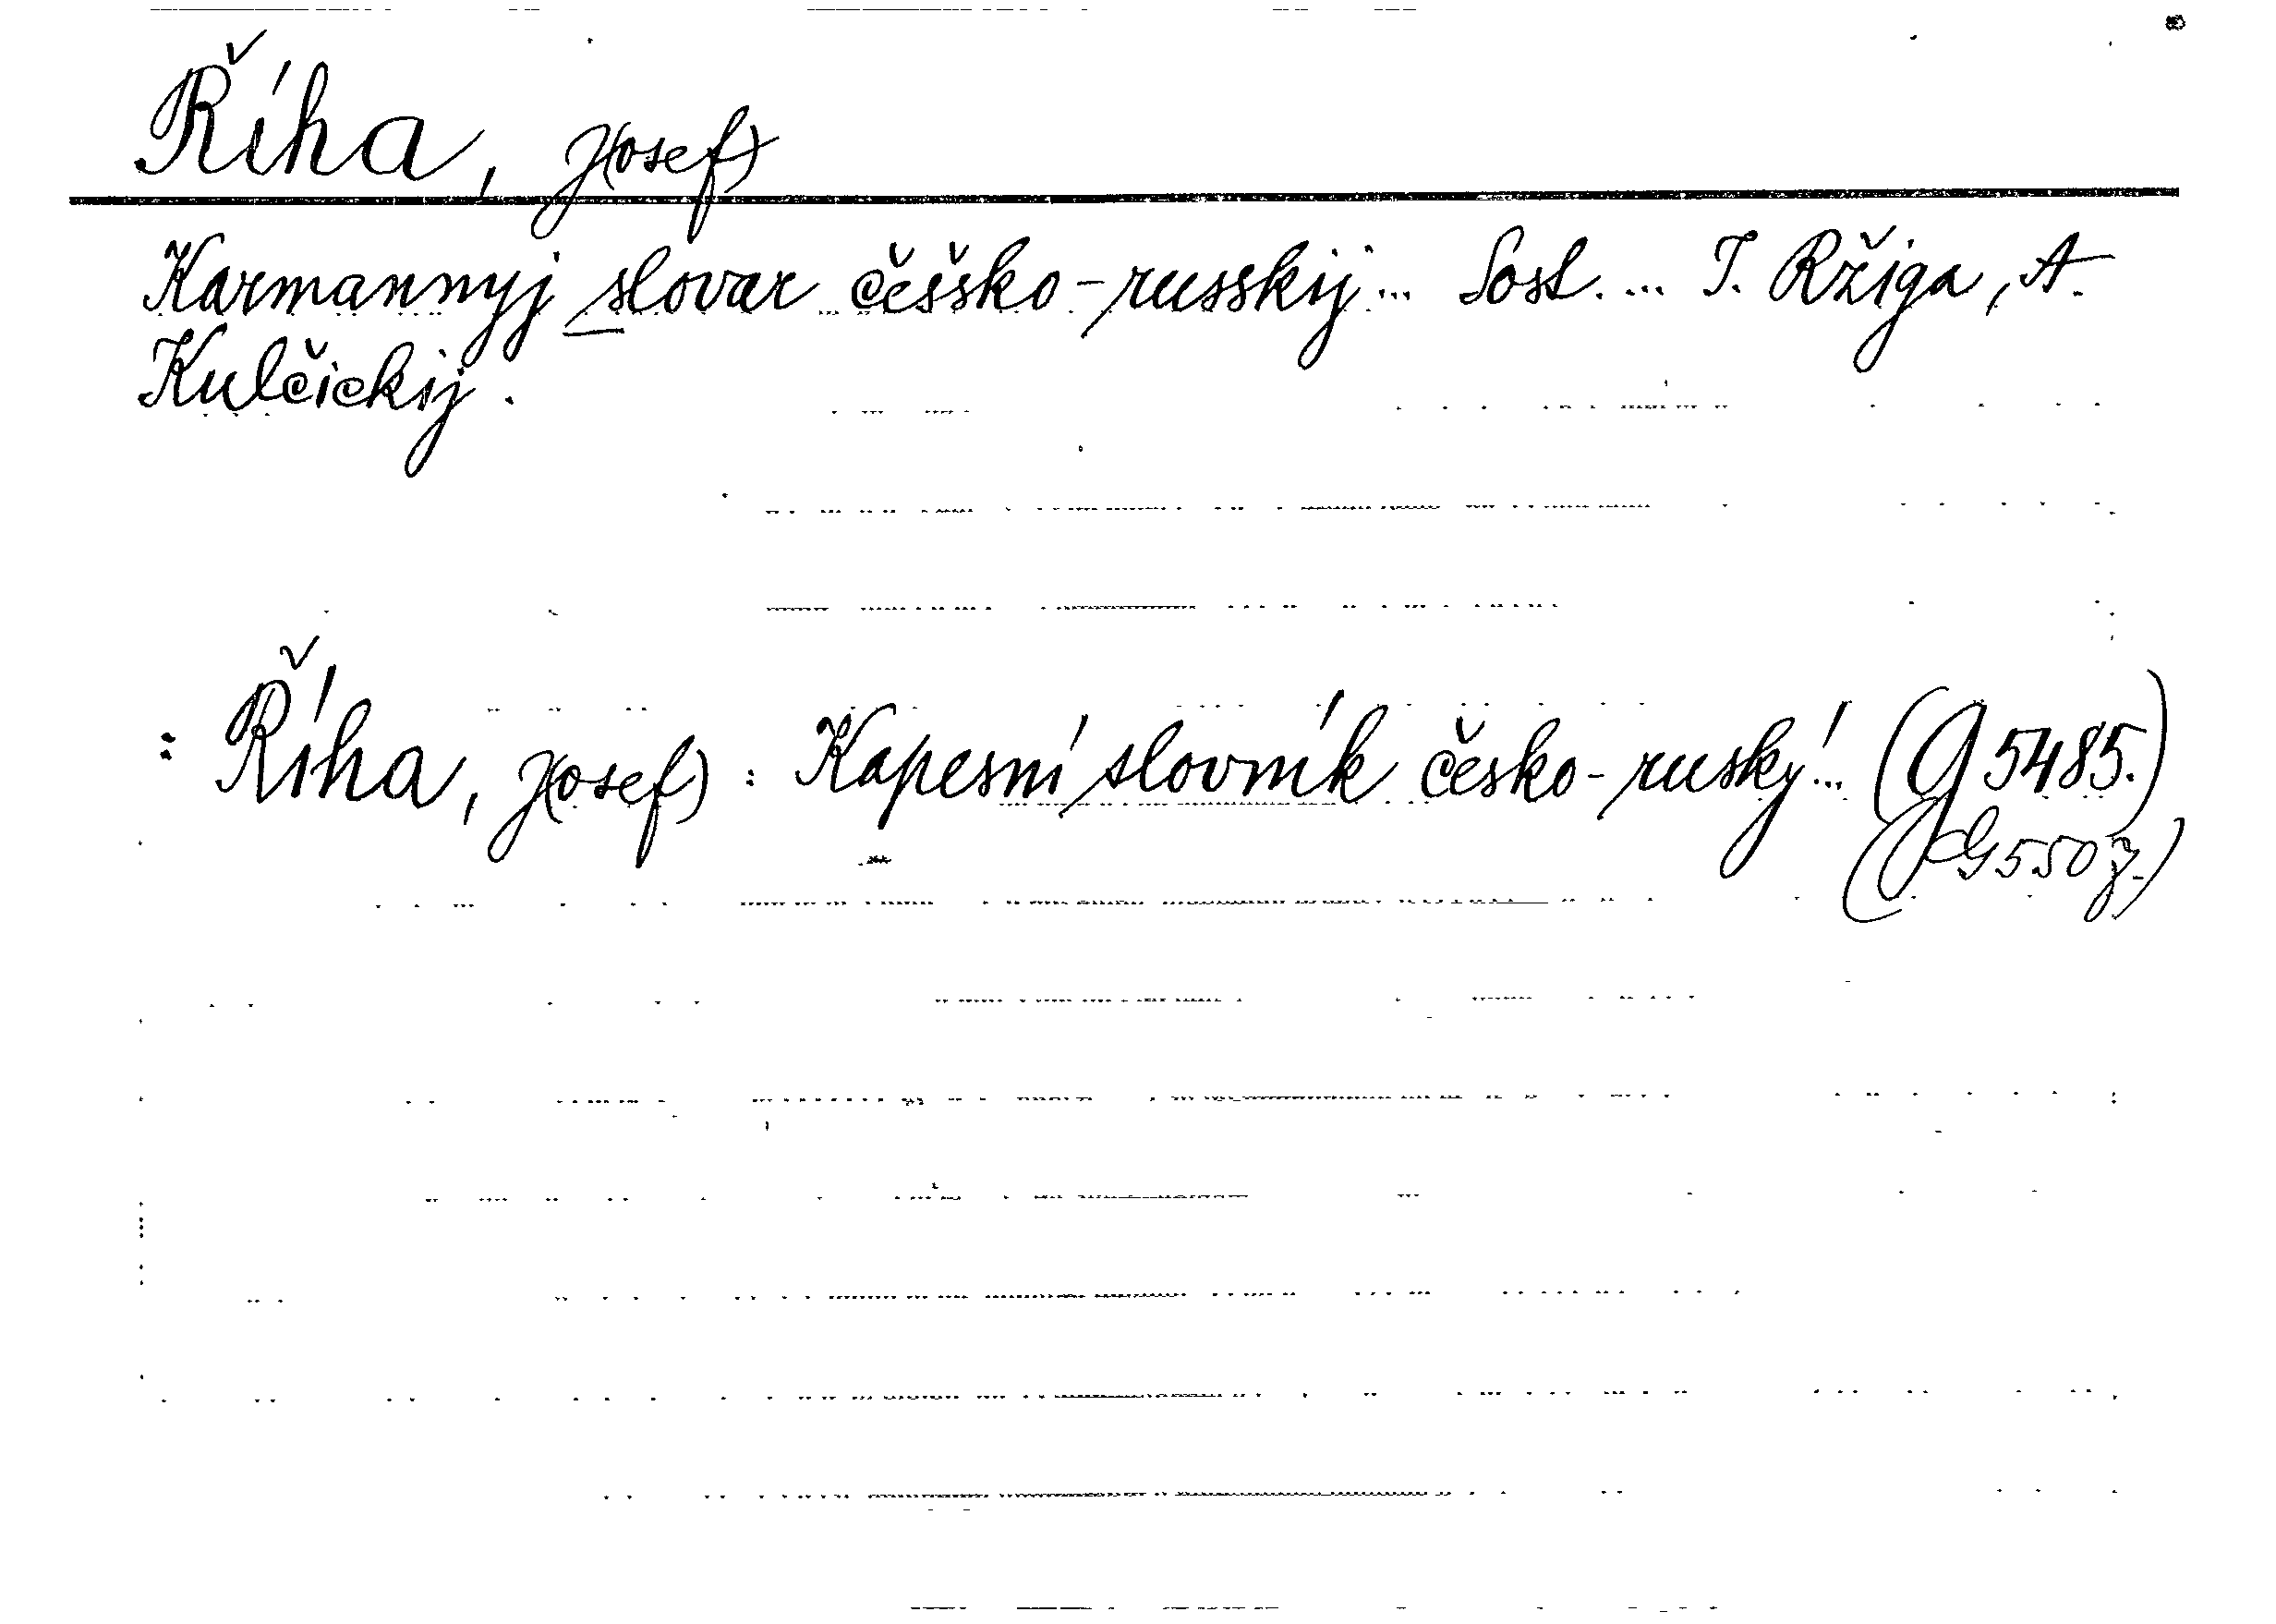 Říha, J(osef)
Karmannyj slovar češsko-russkij... Sost. ... I. Ržiga, A.
Kulčickij.
: Říha, J(osef) : Kapesní slovník česko-ruský... (G 5485.)
(G 5507.)